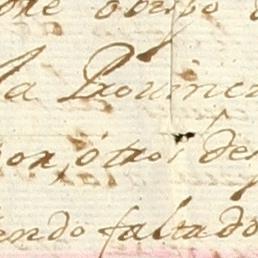 obispo
la Provinc
por, otros de
endo faltado